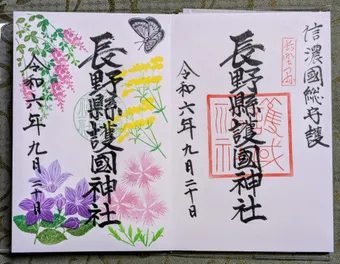 信濃國総守護
長野縣護國神社
令和六年九月二十日
長野縣護國神社
令和六年九月二十日